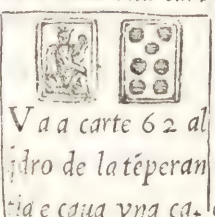 V a a carte 6 2 al
jdro de la téperan
tia e caua vna ca.